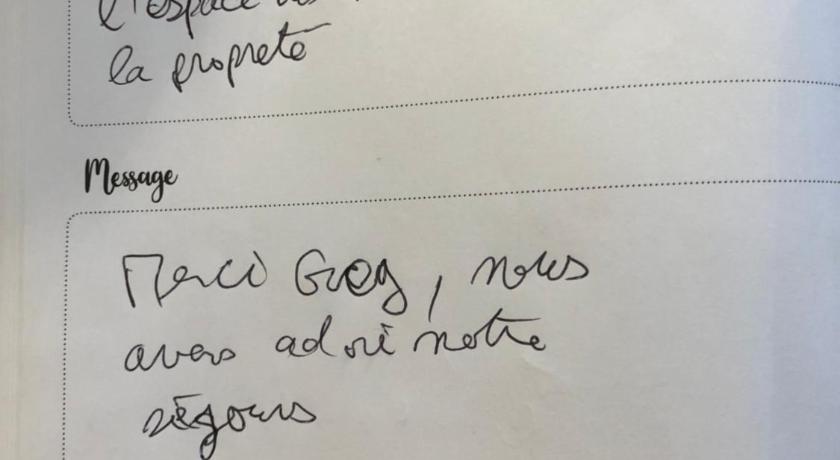 l'espace
la propreté
Message
Merci Greg, nous
avons adoré notre
séjours